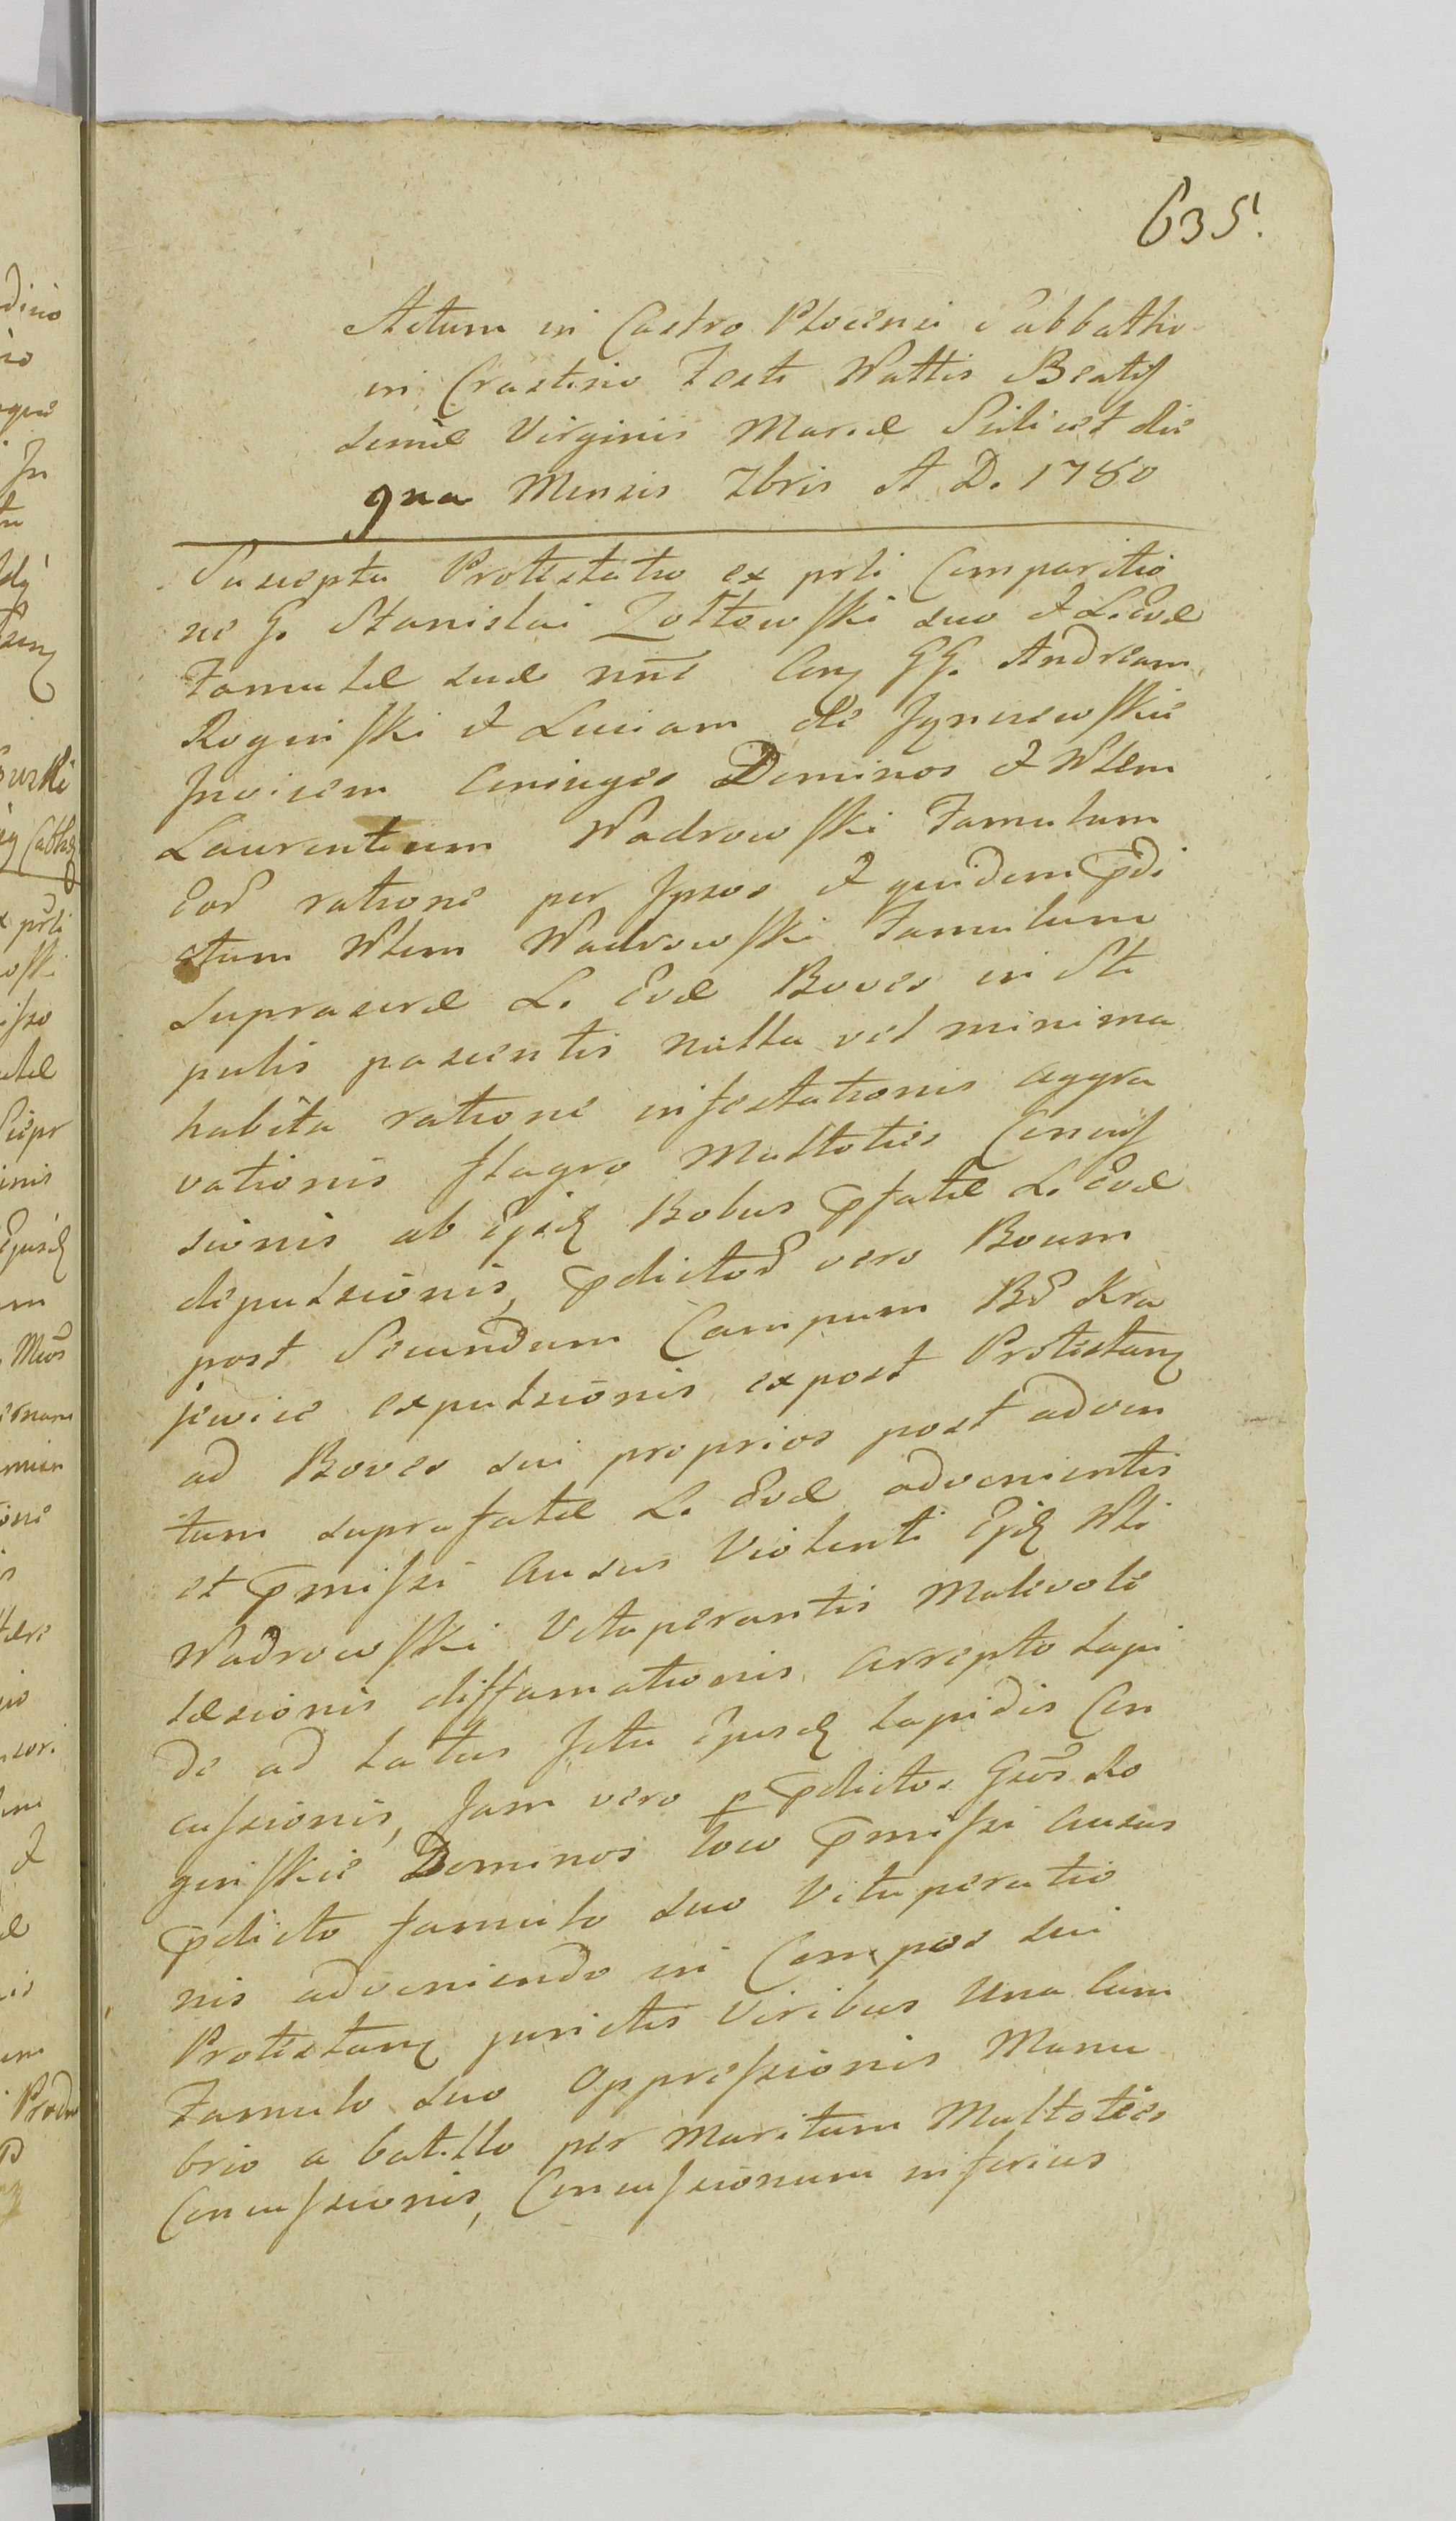 635.
Actum in Castro Plocensi Sabbatho
in Crastino Festi Nattis Beatiſ
simæ Virginis Mariæ Scilicet die
9na Mensis 7bris A D. 1780
Suscepta Protestatio ex prli Comparitio
ne G. Stanislai Zołtowſki suo et L. Evæ
Famulæ suæ nn̄e Con͡ GG. Andream
Roginſki et Luciam de
Invicem Coniuges Dominos et Nlem
Laurentium Wadrowſki Famulum
Eor̄ ratione per Ipsos et quidem p̄di
ctum Nlem Wadrowſki Famulum
suprascræ L. Evæ Boves in Sti
pulis pascentis nulla vel minima
habita ratione infestationis aggra
vationis flagro Multoties Concuſ
sionis ab Ijsdē Bobus p̄fatæ L. Evæ
depulsionis, p̄dictor̄ vero Boum
post Secundum Campum Bō Kra
jewice expulsionis expost Protestan͡
ad Boves sui proprios post adven
tum suprafatæ L. Evæ advenientis
et p̄miſsi Ausus Violenti Ejdē Nli
Wadrowſki Vituperantis Malevolè
læsionis diffamationis arrepto lapi
de ad latus Ictu Ejusdē lapidis Con
cuſsionis, Jam vero p p̄dictos Gsōs Ro
ginſkie Dominos loco p̄miſsi Ausus
p̄dicto famulo suo Vituperatio
nis adveniendo in Campos sui
Protestan͡ junctis Viribus Una Cum
Famulo suo Oppreſsionis Manu
brio a batillo per Maritum Multoties
Concuſsionis, Concuſsionum inferius